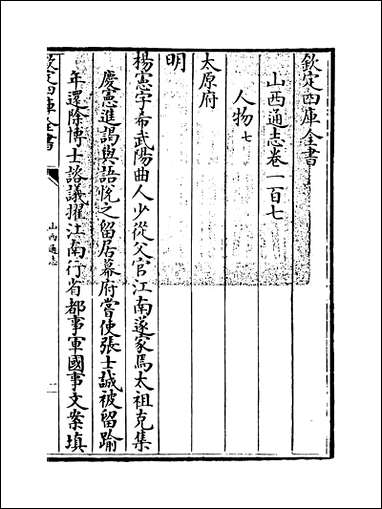 欽定四庫全書
山西通志卷一百七
人物七
太原府
明
楊憲字希武陽曲人少從父官江南遂家焉太祖克集
慶憲進謁與語悅之留居幕府嘗使張士誠被留踰
年還除博士諮議擢江南行省都事軍國事文案填
欽定四庫全書
山西通志